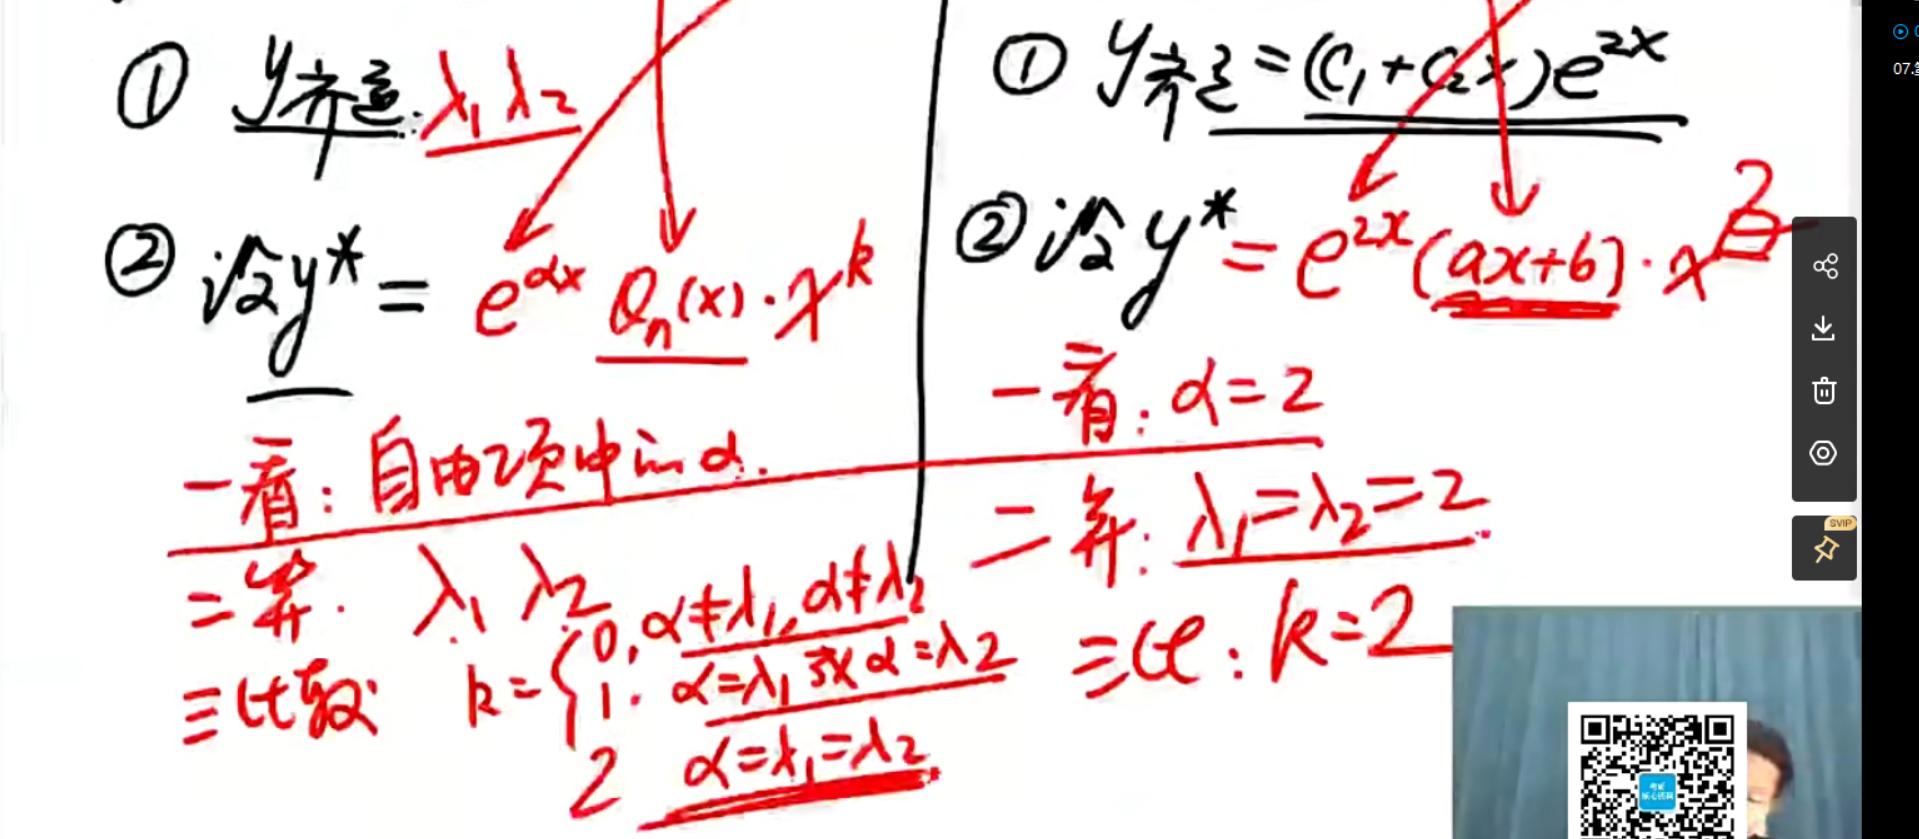 ① y齐通. λ₁ λ₂
② 设y* = e^{αx} Qₙ(x)·x^k
一看: 自由项中的α.
二算. λ₁ λ₂
三比较 k= { 0, α≠λ₁, α≠λ₂
1. α=λ₁ 或 α=λ₂
2 α=λ₁=λ₂
① y齐通 = (C₁+C₂x)e^{2x}
② 设y* = e^{2x}(ax+b)·x^2
一看: α=2
二算: λ₁=λ₂=2
三比: k=2
SVIP
07.